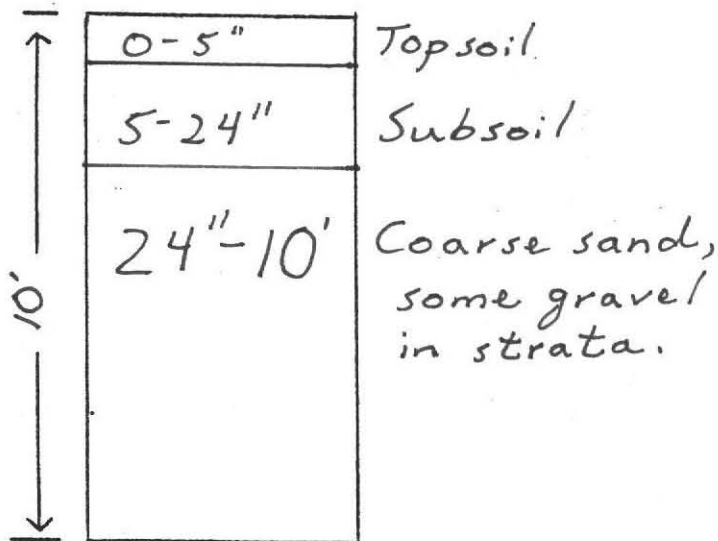 0-5" Topsoil
5-24" Subsoil
24"-10' Coarse sand,
some gravel
in strata.
10'